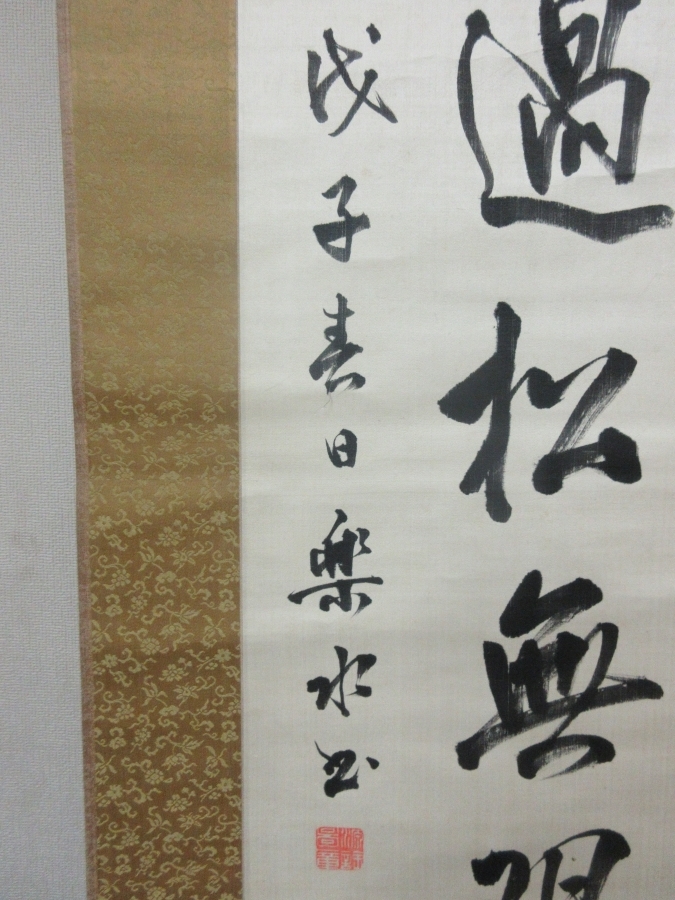 過松無
戊子春日樂水書